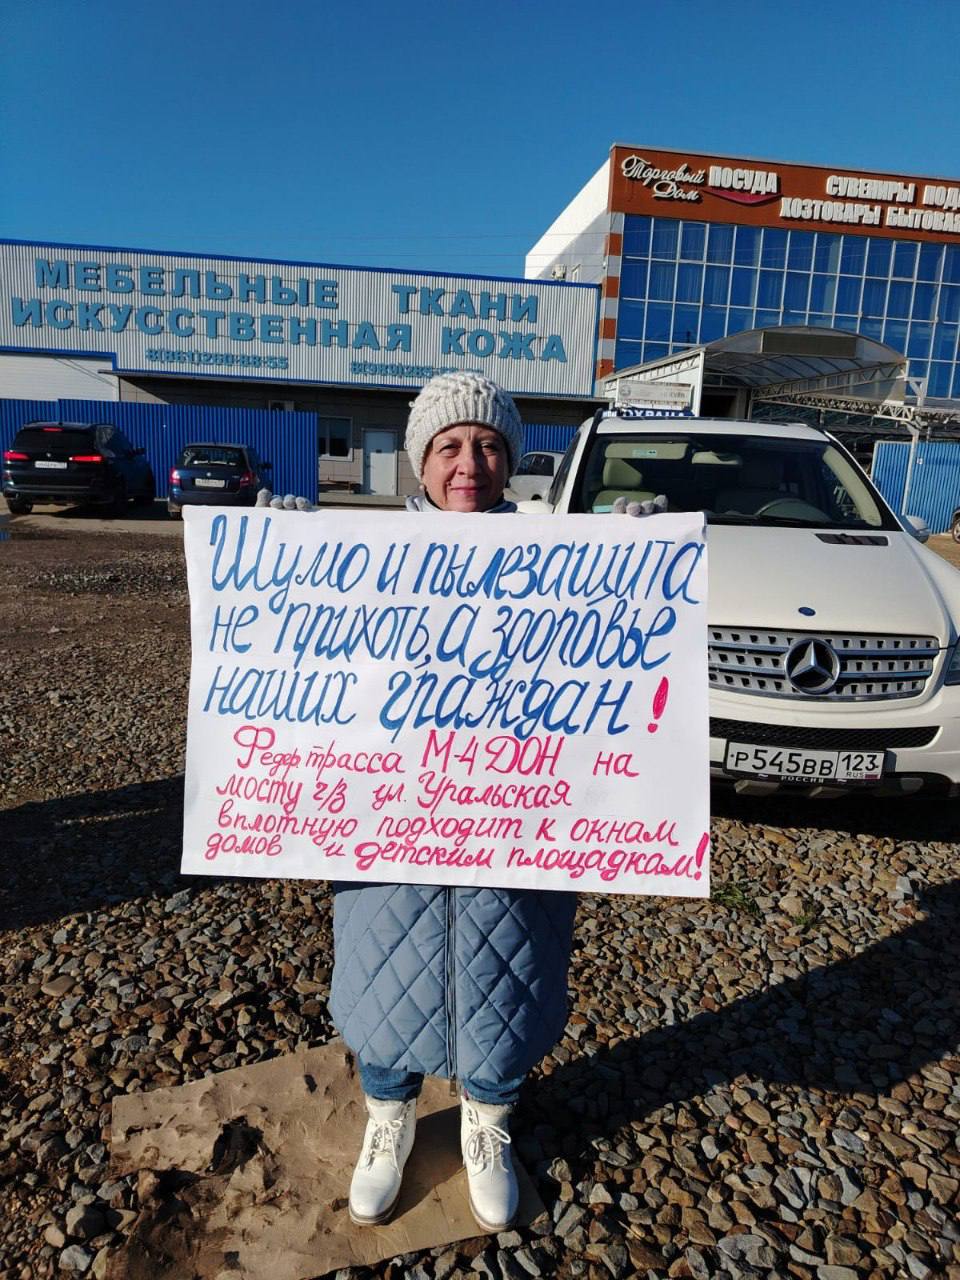 Торговый
Дом
ПОСУДА
СУВЕНИРЫ
ХОЗТОВАРЫ БЫТОВАЯ
МЕБЕЛЬНЫЕ ТКАНИ
ИСКУССТВЕННАЯ КОЖА
8(861)260-88-55
ОХРАНА
Шумо и пылезащита
не прихоть, а здоровье
наших граждан!
Федер трасса М-4 ДОН на
мосту ч/з ул. Уральская
вплотную подходит к окнам
домов и детским площадкам!
Р545ВВ 123
RUS
РОССИЯ